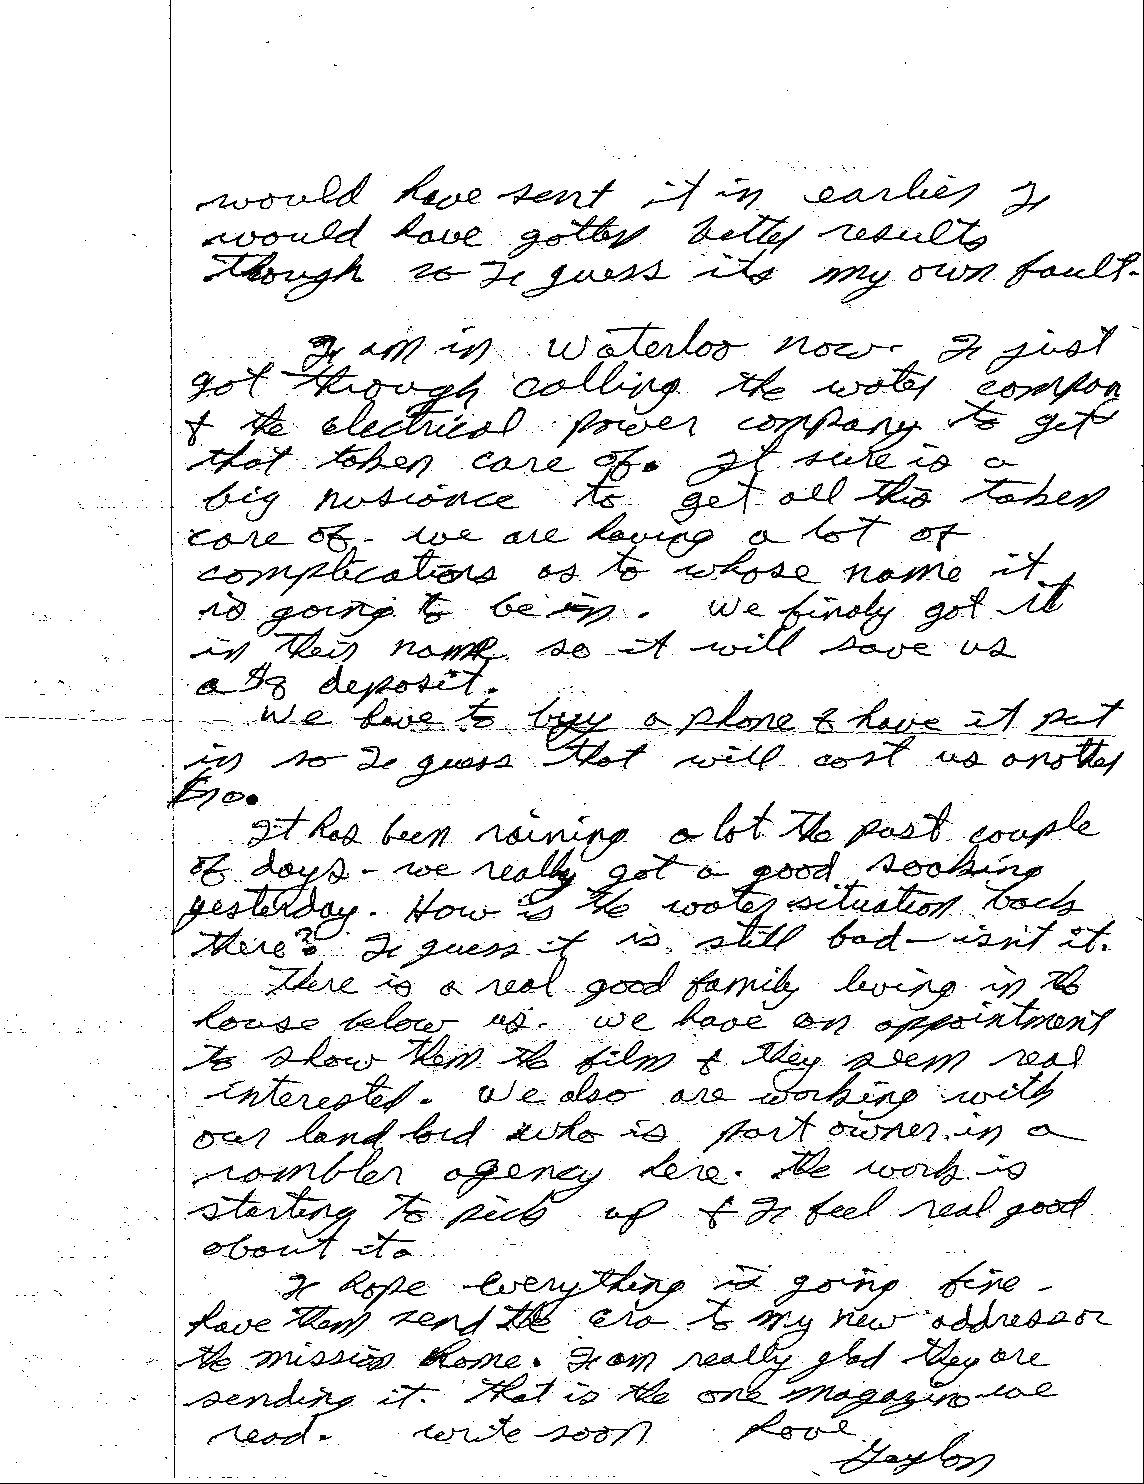 would have sent it in earlier I
would have gotten better results
though so I guess its my own fault.
I am in Waterloo now. I just
got through calling the water compan
& the electrical power company to get
that taken care of. It sure is a
big nusiance to get all this taken
care of. we are having a lot of
complications as to whose name it
is going to be in. We finaly got it
in their name so it will save us
a $8 deposit.
We have to buy a phone & have it put
in so I guess that will cost us another
$10.
It has been raining a lot the past couple
of days - we really got a good soaking
yesterday. How is the water situation back
there? I guess it is still bad - isn't it.
There is a real good family living in the
house below us. we have an appointment
to show them the film & they seem real
interested. We also are working with
our land lord who is part owner in a
rambler agency here. The work is
starting to pick up & I feel real good
about it.
I hope everything is going fine -
have them send the era to my new address or
the mission home. I am really glad they are
sending it. That is the one magazine we
read. write soon Love
Gaylon